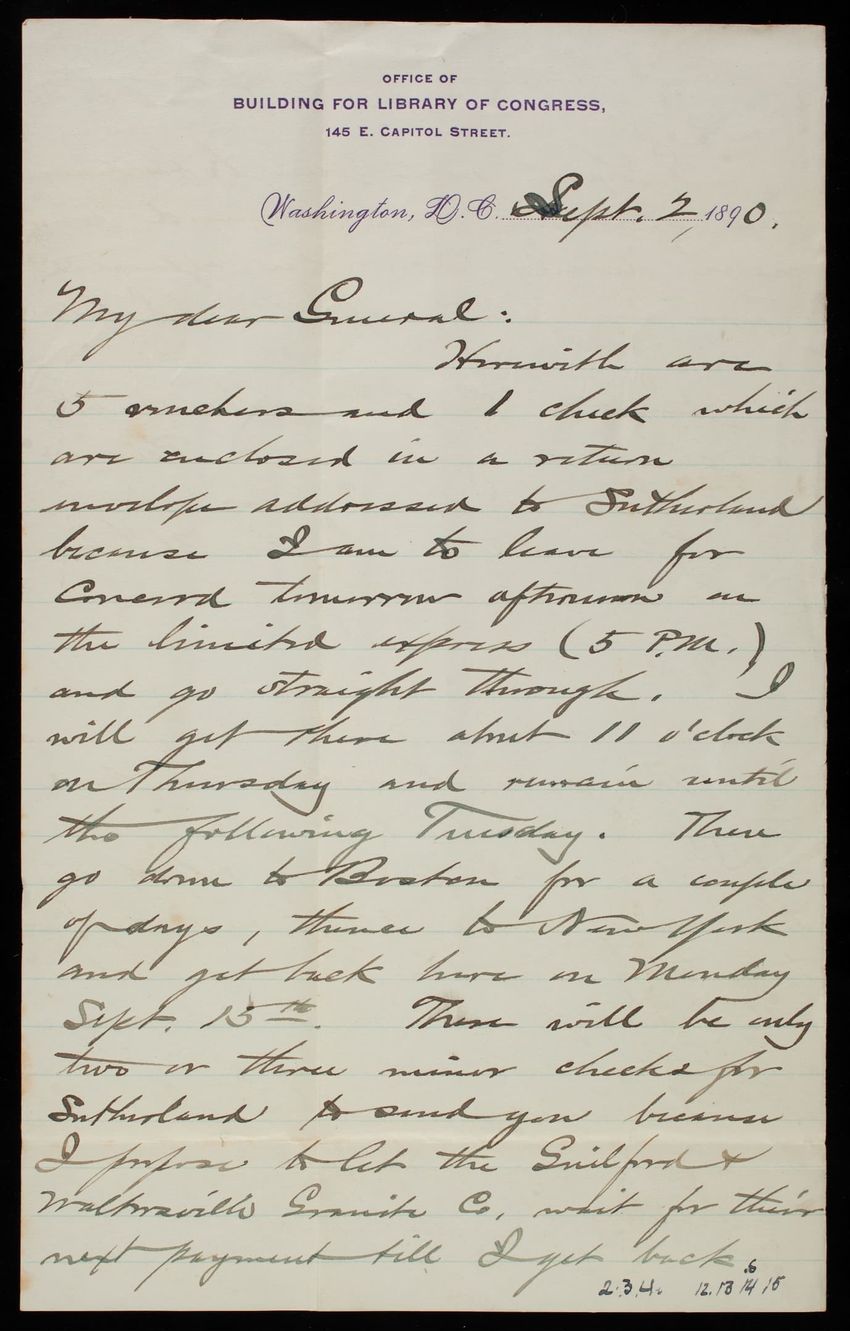 OFFICE OF
BUILDING FOR LIBRARY OF CONGRESS,
145 E. CAPITOL STREET.
Washington, D.C. Sept. 2, 1890.
My dear General:
Herewith are
5 vouchers and 1 check which
are enclosed in a return
envelope addressed to Sutherland
because I am to leave for
Concord tomorrow afternoon on
the limited express (5 P.M.)
and go straight through. I
will get there about 11 o'clock
on Thursday and remain until
the following Tuesday. Then
go down to Boston for a couple
of days, thence to New York
and get back here on Monday
Sept. 15th. There will be only
two or three minor checks for
Sutherland to send you because
I propose to let the Guilford &
Waltersville Granite Co. wait for their
next payment till I get back.
2.3.4. 12.13 14 15